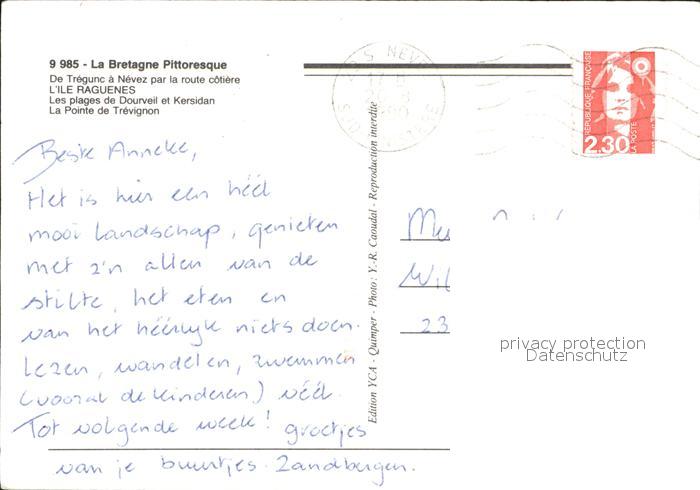 9 985 - La Bretagne Pittoresque
De Trégunc à Névez par la route côtière
L'ILE RAGUENES
Les plages de Dourveil et Kersidan
La Pointe de Trévignon
Beste Anneke,
Het is hier een héél
mooi landschap, genieten
met z'n allen van de
stilte, het eten en
van het héérlijk niets doen.
Lezen, wandelen, zwemmen
(vooral de kinderen) véél.
Tot volgende week! groetjes
van je buurtjes Zandbergen.
Edition YCA - Quimper - Photo : Y.-R. Caoudal - Reproduction interdite
NEVEZ
RÉPUBLIQUE FRANÇAISE
2.30
LA POSTE
23
privacy protection
Datenschutz